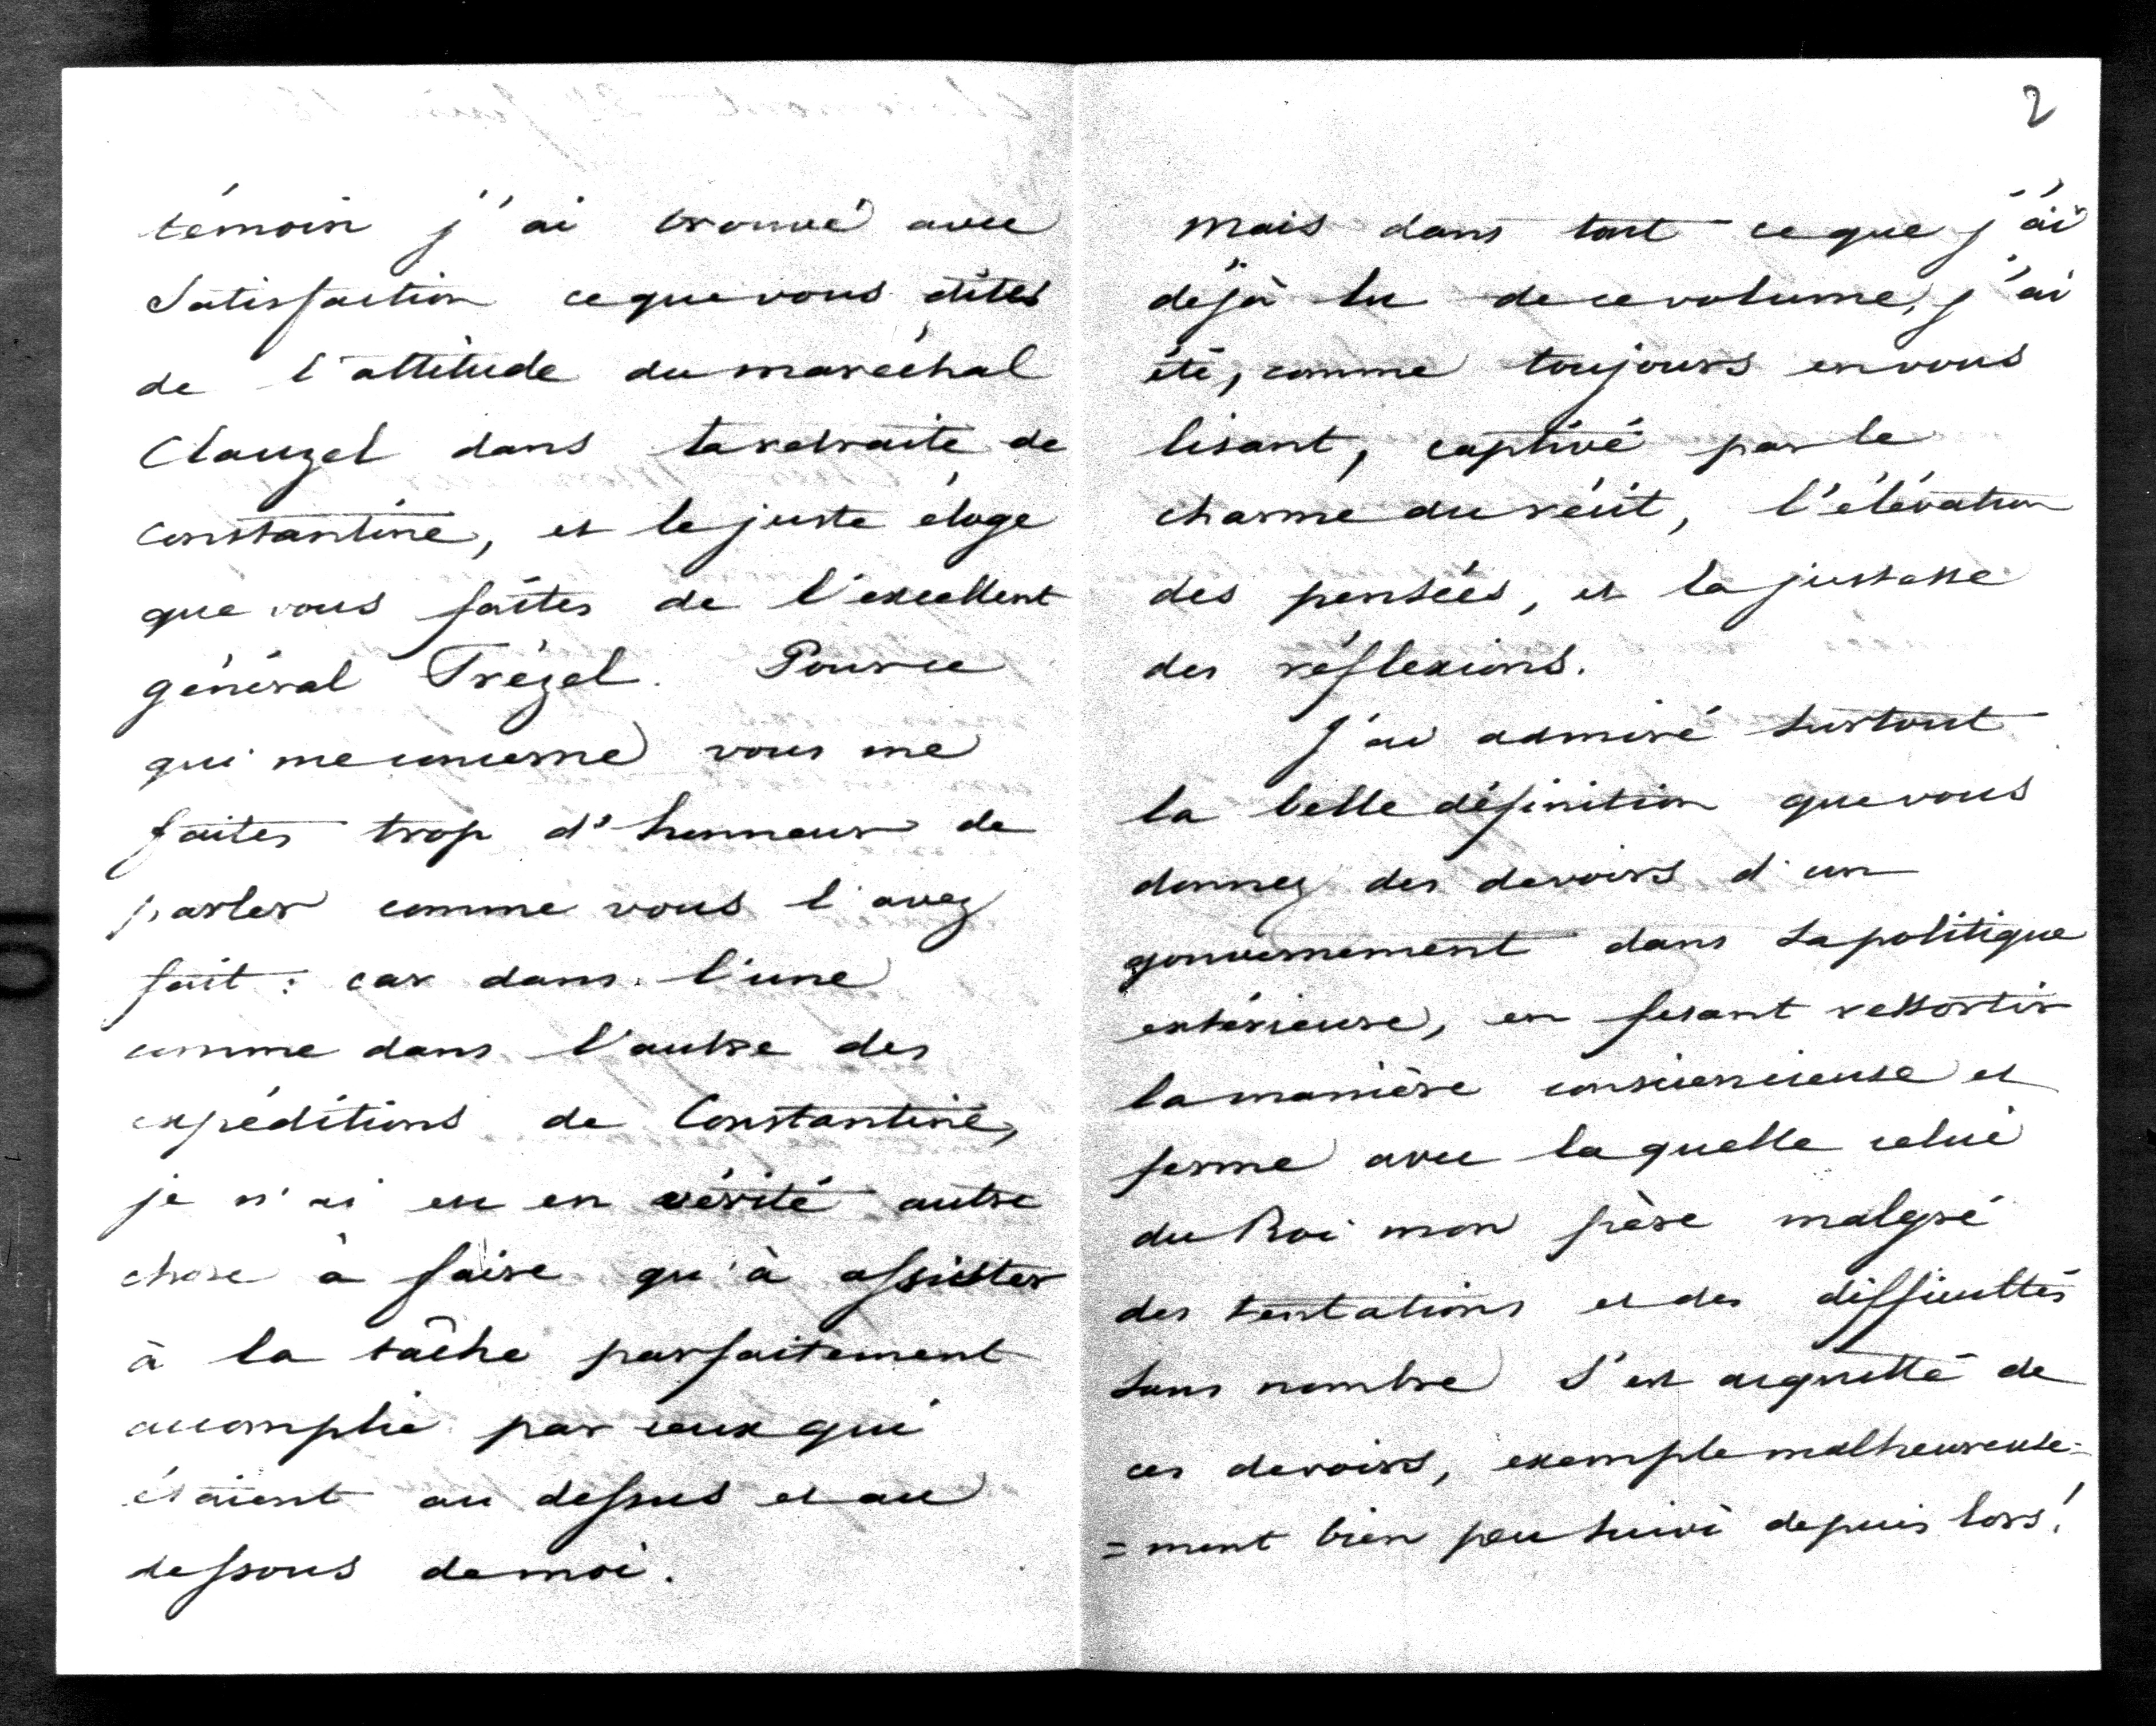 témoin j'ai trouvé avec
satisfaction ce que vous dites
de l'attitude du maréchal
Clauzel dans la retraite de
Constantine, et le juste éloge
que vous faites de l'excellent
général Trézel. Pour ce
qui me concerne vous me
faites trop d'honneur de
parler comme vous l'avez
fait : car dans l'une
comme dans l'autre des
expéditions de Constantine,
je n'ai eu en vérité autre
chose à faire qu'à assister
à la tâche parfaitement
accomplie par ceux qui
étaient au dessus et au
dessous de moi.
2
Mais dans tout ce que j'ai
déjà lu de ce volume, j'ai
été, comme toujours en vous
lisant, captivé par le
charme du récit, l'élévation
des pensées, et la justesse
des réflexions.
J'ai admiré surtout
la belle définition que vous
donnez des devoirs d'un
gouvernement dans sa politique
extérieure, en fesant ressortir
la manière consciencieuse et
ferme avec laquelle celui
du Roi mon père malgré
des tentations et des difficultés
sans nombre s'est acquitté de
ces devoirs, exemple malheureuse=
=ment bien peu suivi depuis lors!